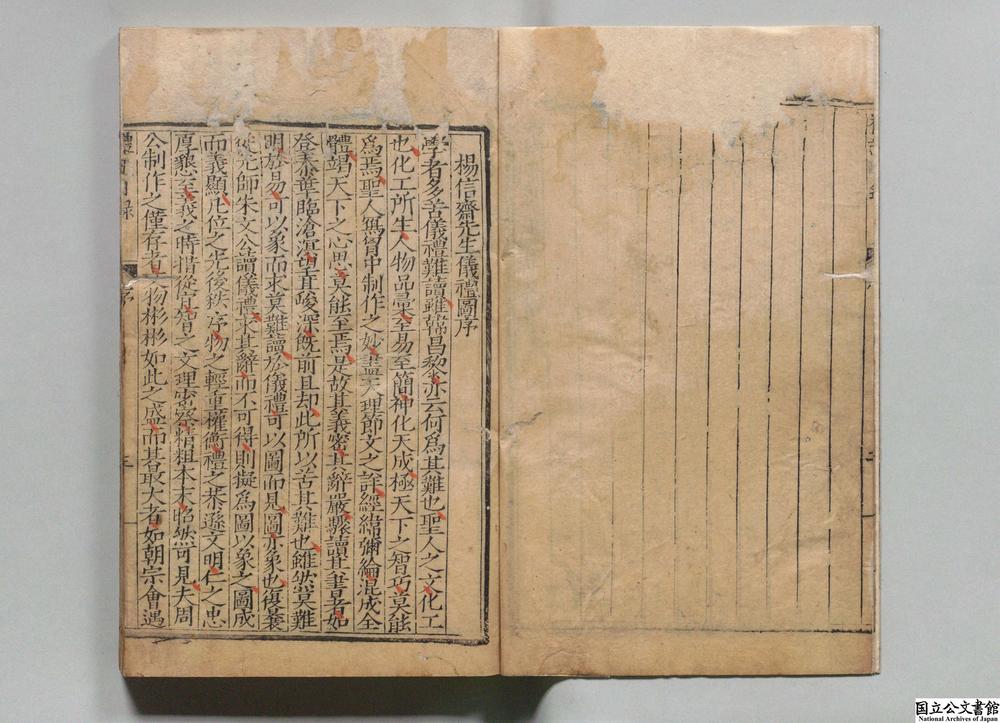 楊信齋先生儀禮圖序
學者多苦儀禮難讀雖韓昌黎亦云何爲其難也聖人之文化工
也化工所生人物品彙至易至簡神化天成極天下之智巧莫能
爲焉聖人寓胷中制作之妙盡天理節文之詳經緯彌綸混成全
體竭天下之心思莫能至焉是故其義密其辭嚴驟讀其書者如
登泰華臨滄溟望其峻深旣前且却此所以苦其難也雖然莫難
明於易可以象而求莫難讀於儀禮可以圖而見圖亦象也復曩
從先師朱文公讀儀禮求其辭而不可得則擬爲圖以象之圖成
而義顯凡位之先後秩序物之輕重權衡禮之恭遜文明仁之忠
厚懇至義之時措從宜智之文理密察精粗本末昭然可見夫周
公制作之僅存者文物彬彬如此之盛而其最大者如朝宗會遇
序
国立公文書館
National Archives of Japan